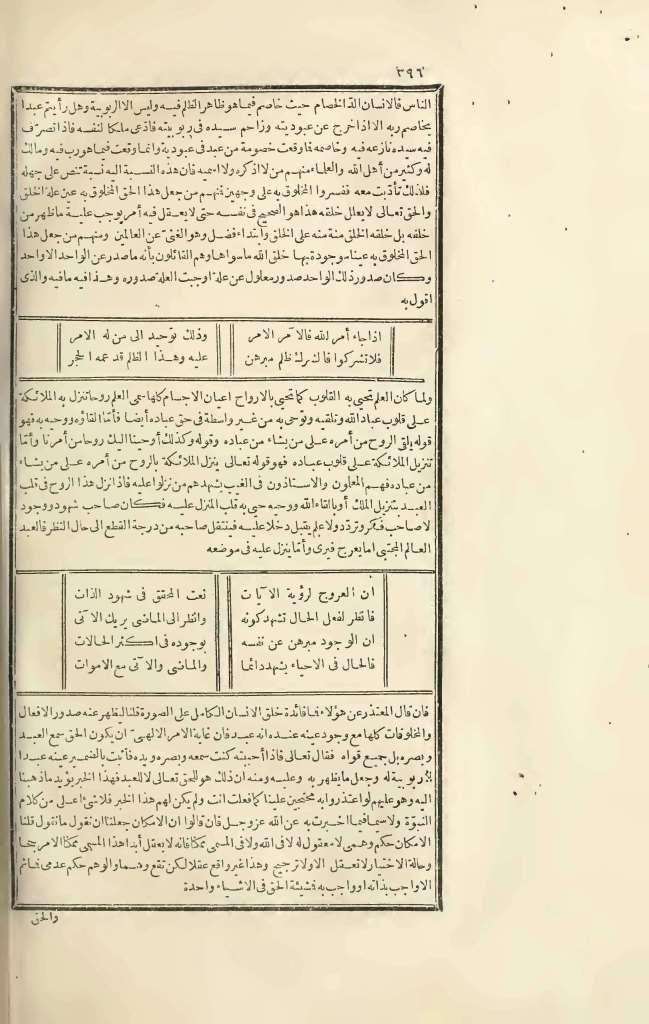 ٣٩٦
الناس فالانسان الدّ الخصام حيث خاصم فيما هو ظاهر الظلم فيه وليس الا الربوبية وهل رأيتم عبدا
يخاصم ربه الا اذا خرج عن عبوديته وزاحم سيده في ربوبيته فادّعى ملكا لنفسه فاذا تصرّف
فيه سيده نازعه فيه وخاصمه فما وقعت خصومة من عبد في عبودية وانما وقعت فيما هو رب فيه ومالك
له وكثير من أهل الله والعلماء منهم من لا اذكره ولا اسميه فان هذه النسبة اليه نسبة تنص على جهله
فلذلك تأدّبت معه ففسروا المخلوق به على وجهين فمنهم من جعل هذا الحق المخلوق به عين علة الخلق
والحق تعالى لا يعلل خلقه هذا هو الصحيح في نفسه حتى لا يعقل فيه أمر يوجب عليه ما ظهر من
خلقه بل خلقه الخلق منة منه على الخلق وابتداء فضل وهو الغني عن العالمين ومنهم من جعل هذا
الحق المخلوق به عينا موجودة بها خلق الله ما سواها وهم القائلون بأنه ما صدر عن الواحد الا واحد
وكان صدور ذلك الواحد صدور معلول عن علة اوجبت العلة صدوره وهذا فيه ما فيه والذي
اقول به
اذا جاء أمر الله فالآمر الامر وذلك توحيد الى من له الامر
فلا تشركوا فالشرك ظلم مبرهن عليه وهذا الظلم قد عمه الحجر
ولما كان العلم تحيى به القلوب كما تحيى بالارواح اعيان الاجسام كلها سمى العلم روحا تنزل به الملائكة
على قلوب عباد الله وتلقيه وتوحى به من غير واسطة في حق عباده أيضا فأمّا القاؤه ووحيه به فهو
قوله يلقى الروح من أمره على من يشاء من عباده وقوله وكذلك أوحينا اليك روحا من أمرنا وأمّا
تنزيل الملائكة على قلوب عباده فهو قوله تعالى ينزل الملائكة بالروح من أمره على من يشاء
من عباده فهم المعلمون والاستاذون في الغيب يشهدهم من نزلوا عليه فاذا نزل هذا الروح في قلب
العبد بتنزيل الملك أو بالقاء الله ووحيه حيى به قلب المنزل عليه فكان صاحب شهود ووجود
لا صاحب فكر وتردّد ولا علم يقبل دخلا عليه فينتقل صاحبه من درجة القطع الى حال النظر فالعبد
العالم المجتبى اما يعرج فيرى وأمّا ينزل عليه في موضعه
ان العروج لرؤية الآيات نعت المحقق في شهود الذات
فانظر لفعل الحال تشهد كونه وانظر الى الماضي يريك الآتى
ان الوجود مبرهن عن نفسه بوجوده في اكثر الحالات
فالحال في الاحياء يشهد دائما والماضي والآتى مع الاموات
فان قال المعتذر عن هؤلاء فما فائدة خلق الانسان الكامل على الصورة قلنا ليظهر عنه صدور الافعال
والمخلوقات كلها مع وجود عينه عنده انه عبد فان غاية الامر الالهىّ ان يكون الحق سمع العبد
وبصره بل جميع قواه فقال تعالى فاذا أحببته كنت سمعه وبصره ويده فأثبت بالضمير عينه عبدا
لا ربوبية له وجعل ما يظهر به وعليه ومنه ان ذلك هو للحق تعالى لا للعبد فهذا الخبر يؤيد ما ذهبنا
اليه وهو عليهم لو اعتذروا به محتجين علينا كما فعلت انت ولم يكن لهم هذا الخبر فلا شئ اعلى من كلام
النبوّة ولا سيما فيما اخبرت به عن الله عز وجل فان قالوا ان الامكان جعلنا ان نقول ما تقول قلنا
الامكان حكم وهمى لا معقول له لا في الله ولا في المسمى ممكنا فانه لا يعقل أبدا هذا المسمى ممكنا الا مرجحا
وحالة الاختيار لا تعقل الا ولا ترجيح وهذا غير واقع عقلا لكن تقع وهما والوهم حكم عدمى فما ثم
الا واجب بذاته او واجب به فشيئة الحق في الاشياء واحدة
والحق